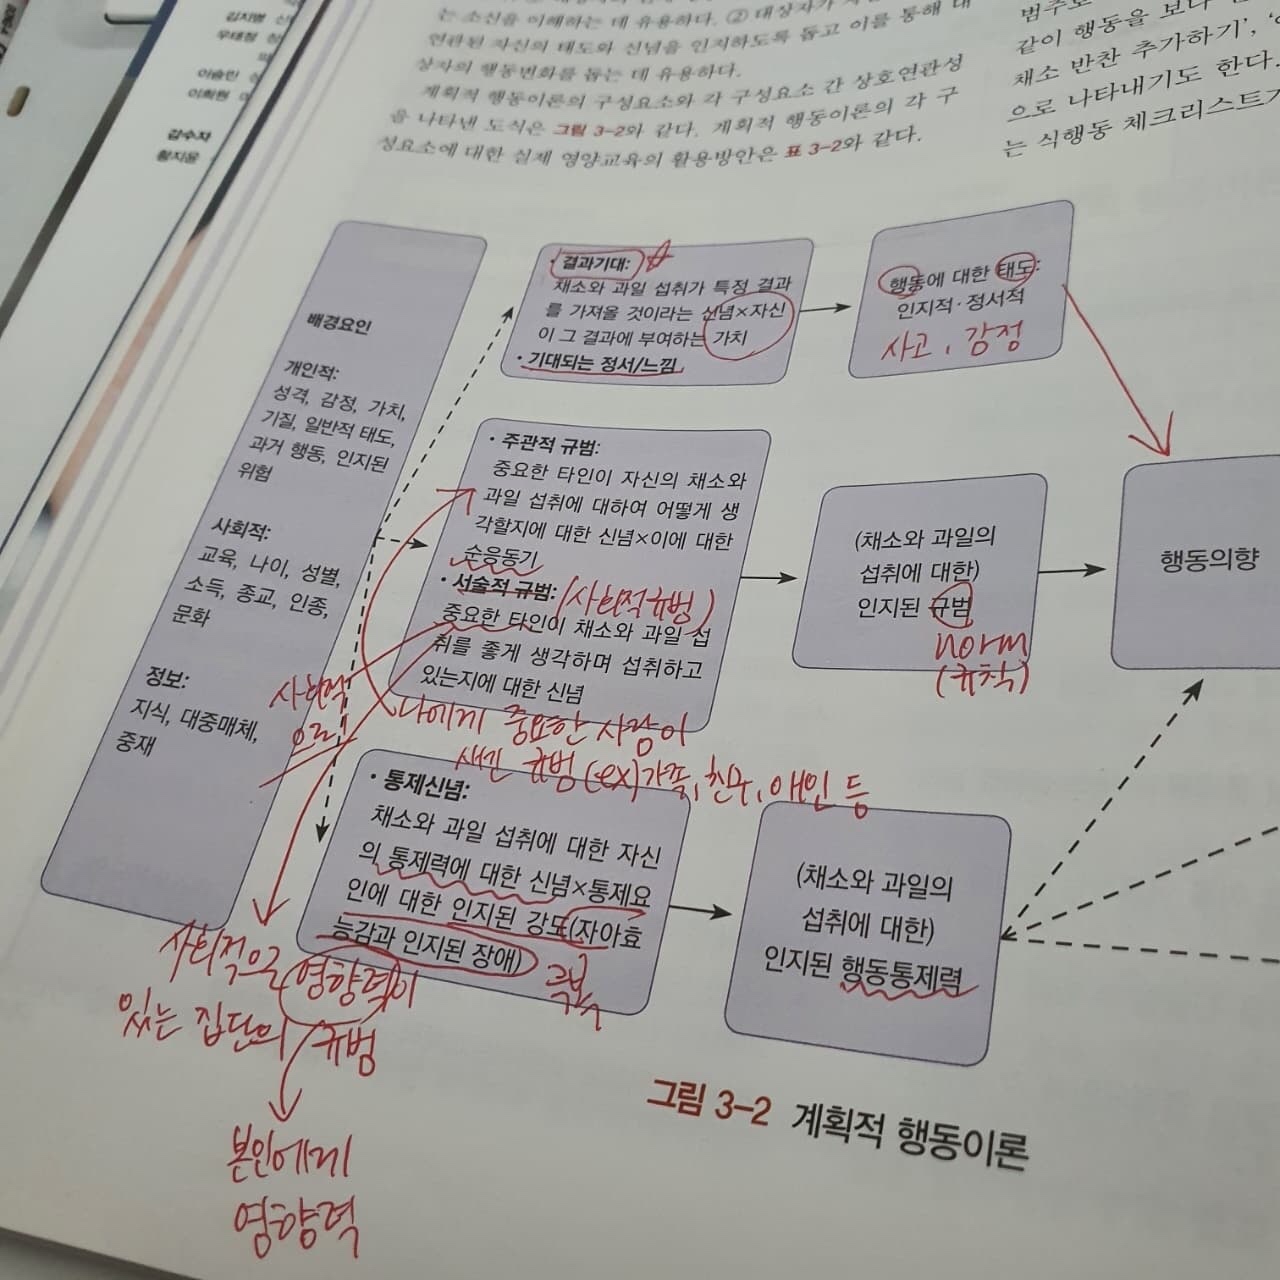 김지명
우태정
이승민
이희원
감수자
황지윤
는 소신을 이해하는 데 유용하다. ② 대상자가
연관된 자신의 태도와 신념을 인지하도록 돕고 이를 통해 대
상자의 행동변화를 돕는 데 유용하다.
계획적 행동이론의 구성요소와 각 구성요소 간 상호연관성
을 나타낸 도식은 그림 3-2와 같다. 계획적 행동이론의 각 구
성요소에 대한 실제 영양교육의 활용방안은 표 3-2와 같다.
범주로
같이 행동을 보다
채소 반찬 추가하기’,
으로 나타내기도 한다.
는 식행동 체크리스트
배경요인
개인적:
성격, 감정, 가치,
기질, 일반적 태도,
과거 행동, 인지된
위험
사회적:
교육, 나이, 성별,
소득, 종교, 인종,
문화
정보:
지식, 대중매체,
중재
• 결과기대:
채소와 과일 섭취가 특정 결과
를 가져올 것이라는 신념×자신
이 그 결과에 부여하는 가치
• 기대되는 정서/느낌
행동에 대한 태도:
인지적·정서적
사고, 감정
• 주관적 규범:
중요한 타인이 자신의 채소와
과일 섭취에 대하여 어떻게 생
각할지에 대한 신념×이에 대한
순응동기
• 서술적 규범: (사회적규범)
중요한 타인이 채소와 과일 섭
취를 좋게 생각하며 섭취하고
있는지에 대한 신념
(채소와 과일의
섭취에 대한)
인지된 규범
norm
(규칙)
행동의향
사회적
으로
나에게 중요한 사람이
규범 (ex)가족, 친구, 애인 등
• 통제신념:
채소와 과일 섭취에 대한 자신
의 통제력에 대한 신념×통제요
인에 대한 인지된 강도(자아효
능감과 인지된 장애)
(채소와 과일의
섭취에 대한)
인지된 행동통제력
사회적으로 영향력이
있는 집단의 규범
본인에게
영향력
그림 3-2 계획적 행동이론